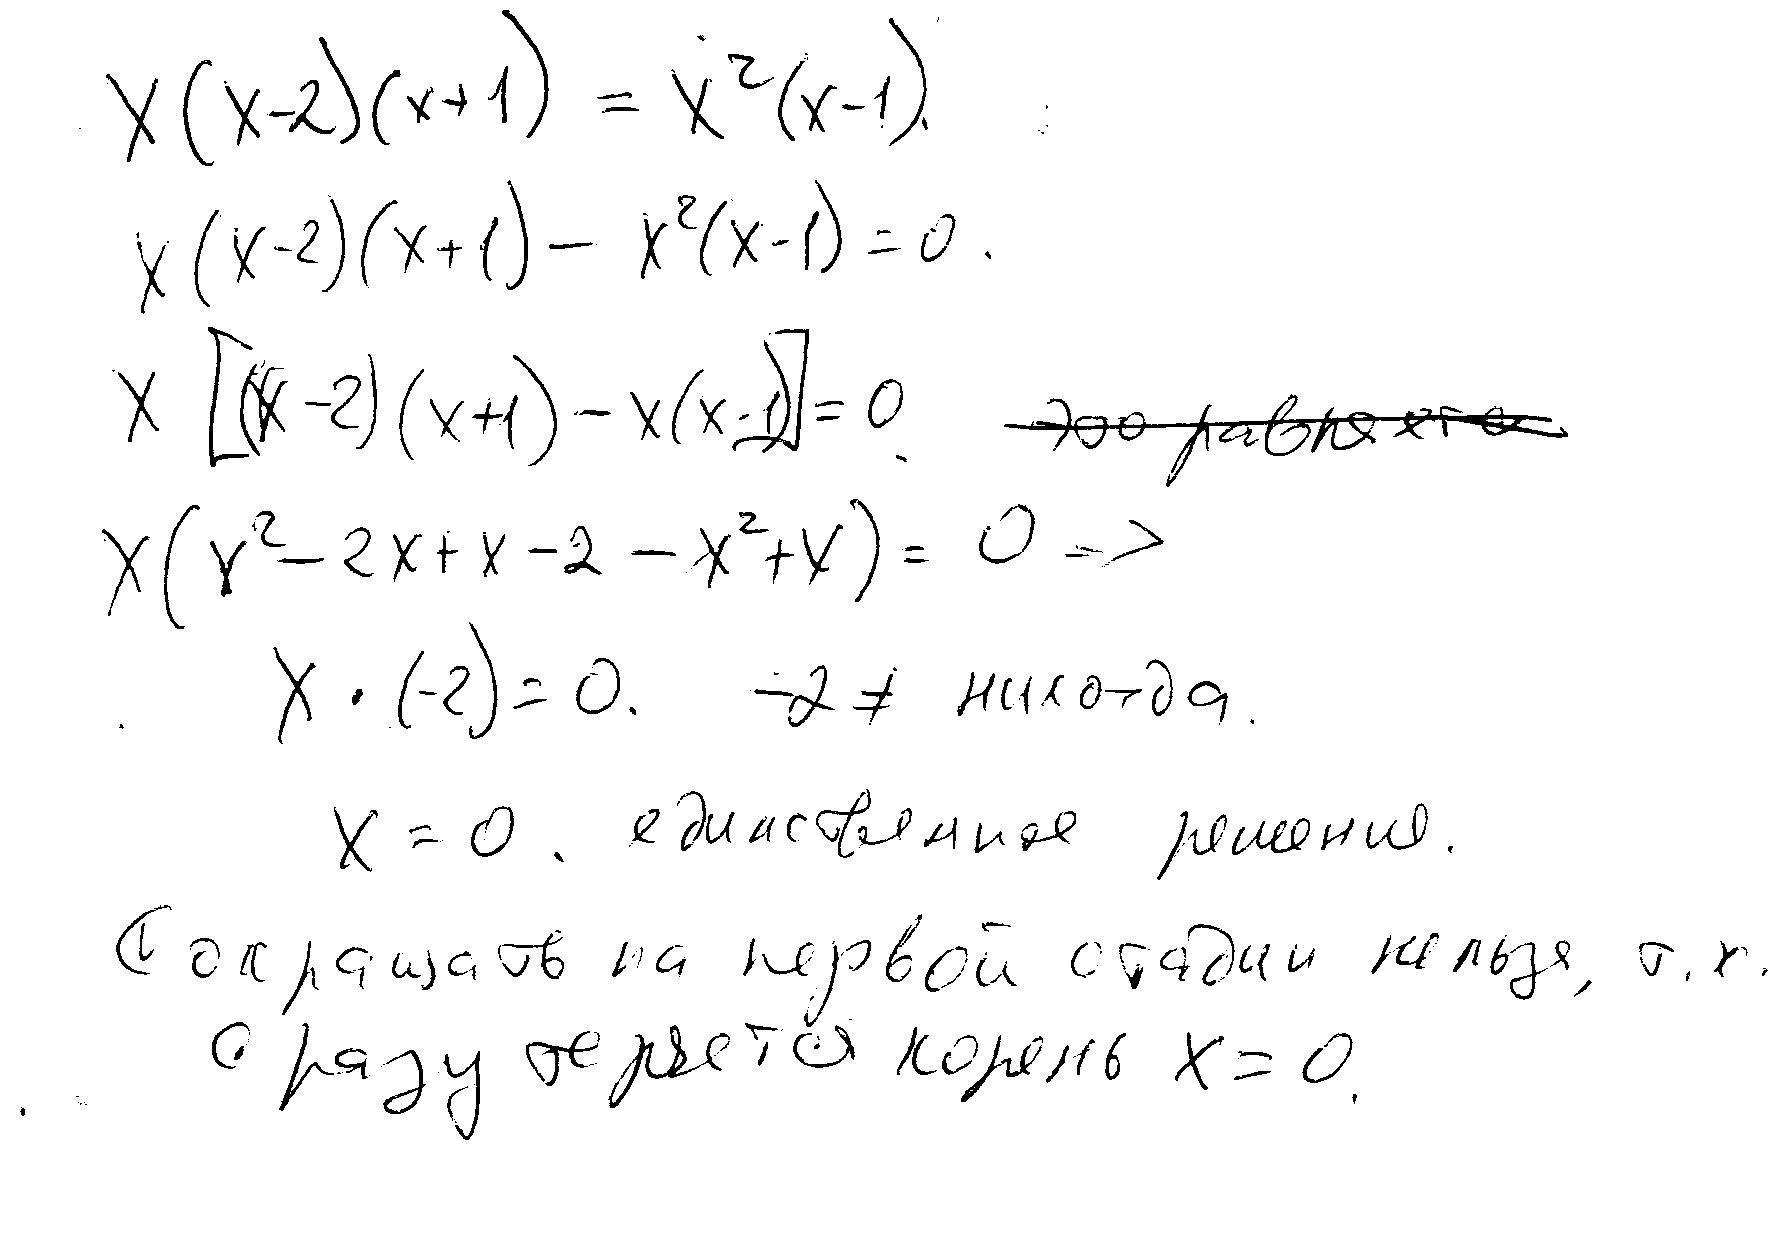 x(x-2)(x+1) = x²(x-1).
x(x-2)(x+1) - x²(x-1) = 0.
x [(x-2)(x+1) - x(x-1)] = 0.
x(x² - 2x + x - 2 - x² + x) = 0 =>
x · (-2) = 0. -2 ≠ никогда.
x = 0. единственное решение.
Сокращать на первой стадии нельзя, т.к.
сразу теряется корень x = 0.